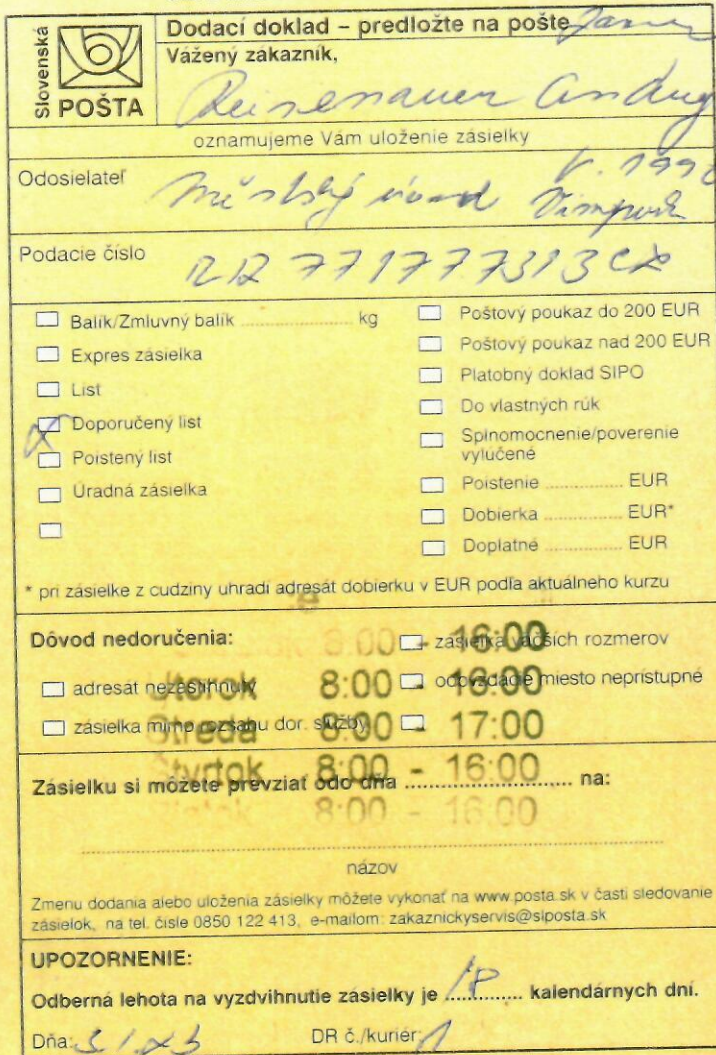 Slovenská
POŠTA
Dodací doklad – predložte na pošte
Vážený zákazník,
oznamujeme Vám uloženie zásielky
Odosielateľ
Podacie číslo RR 771777313 CZ
Balík/Zmluvný balík .................... kg
Expres zásielka
List
Doporučený list
Poistený list
Úradná zásielka
Poštový poukaz do 200 EUR
Poštový poukaz nad 200 EUR
Platobný doklad SIPO
Do vlastných rúk
Splnomocnenie/poverenie
vylúčené
Poistenie .............. EUR
Dobierka .............. EUR*
Doplatné .............. EUR
* pri zásielke z cudziny uhradí adresát dobierku v EUR podľa aktuálneho kurzu
Dôvod nedoručenia:
zásielka väčších rozmerov
adresát nezastihnutý
odovzdacie miesto neprístupné
zásielka mimo rozsahu dor. služby
8:00 - 16:00
Utorok 8:00 - 16:00
Streda 8:00 - 17:00
Štvrtok 8:00 - 16:00
Piatok 8:00 - 16:00
Zásielku si môžete prevziať odo dňa .............................. na:
názov
Zmenu dodania alebo uloženia zásielky môžete vykonať na www.posta.sk v časti sledovanie
zásielok, na tel. čísle 0850 122 413, e-mailom: zakaznickyservis@slposta.sk
UPOZORNENIE:
Odberná lehota na vyzdvihnutie zásielky je 18 kalendárnych dní.
Dňa: 3.1.23 DR č./kuriér: 1